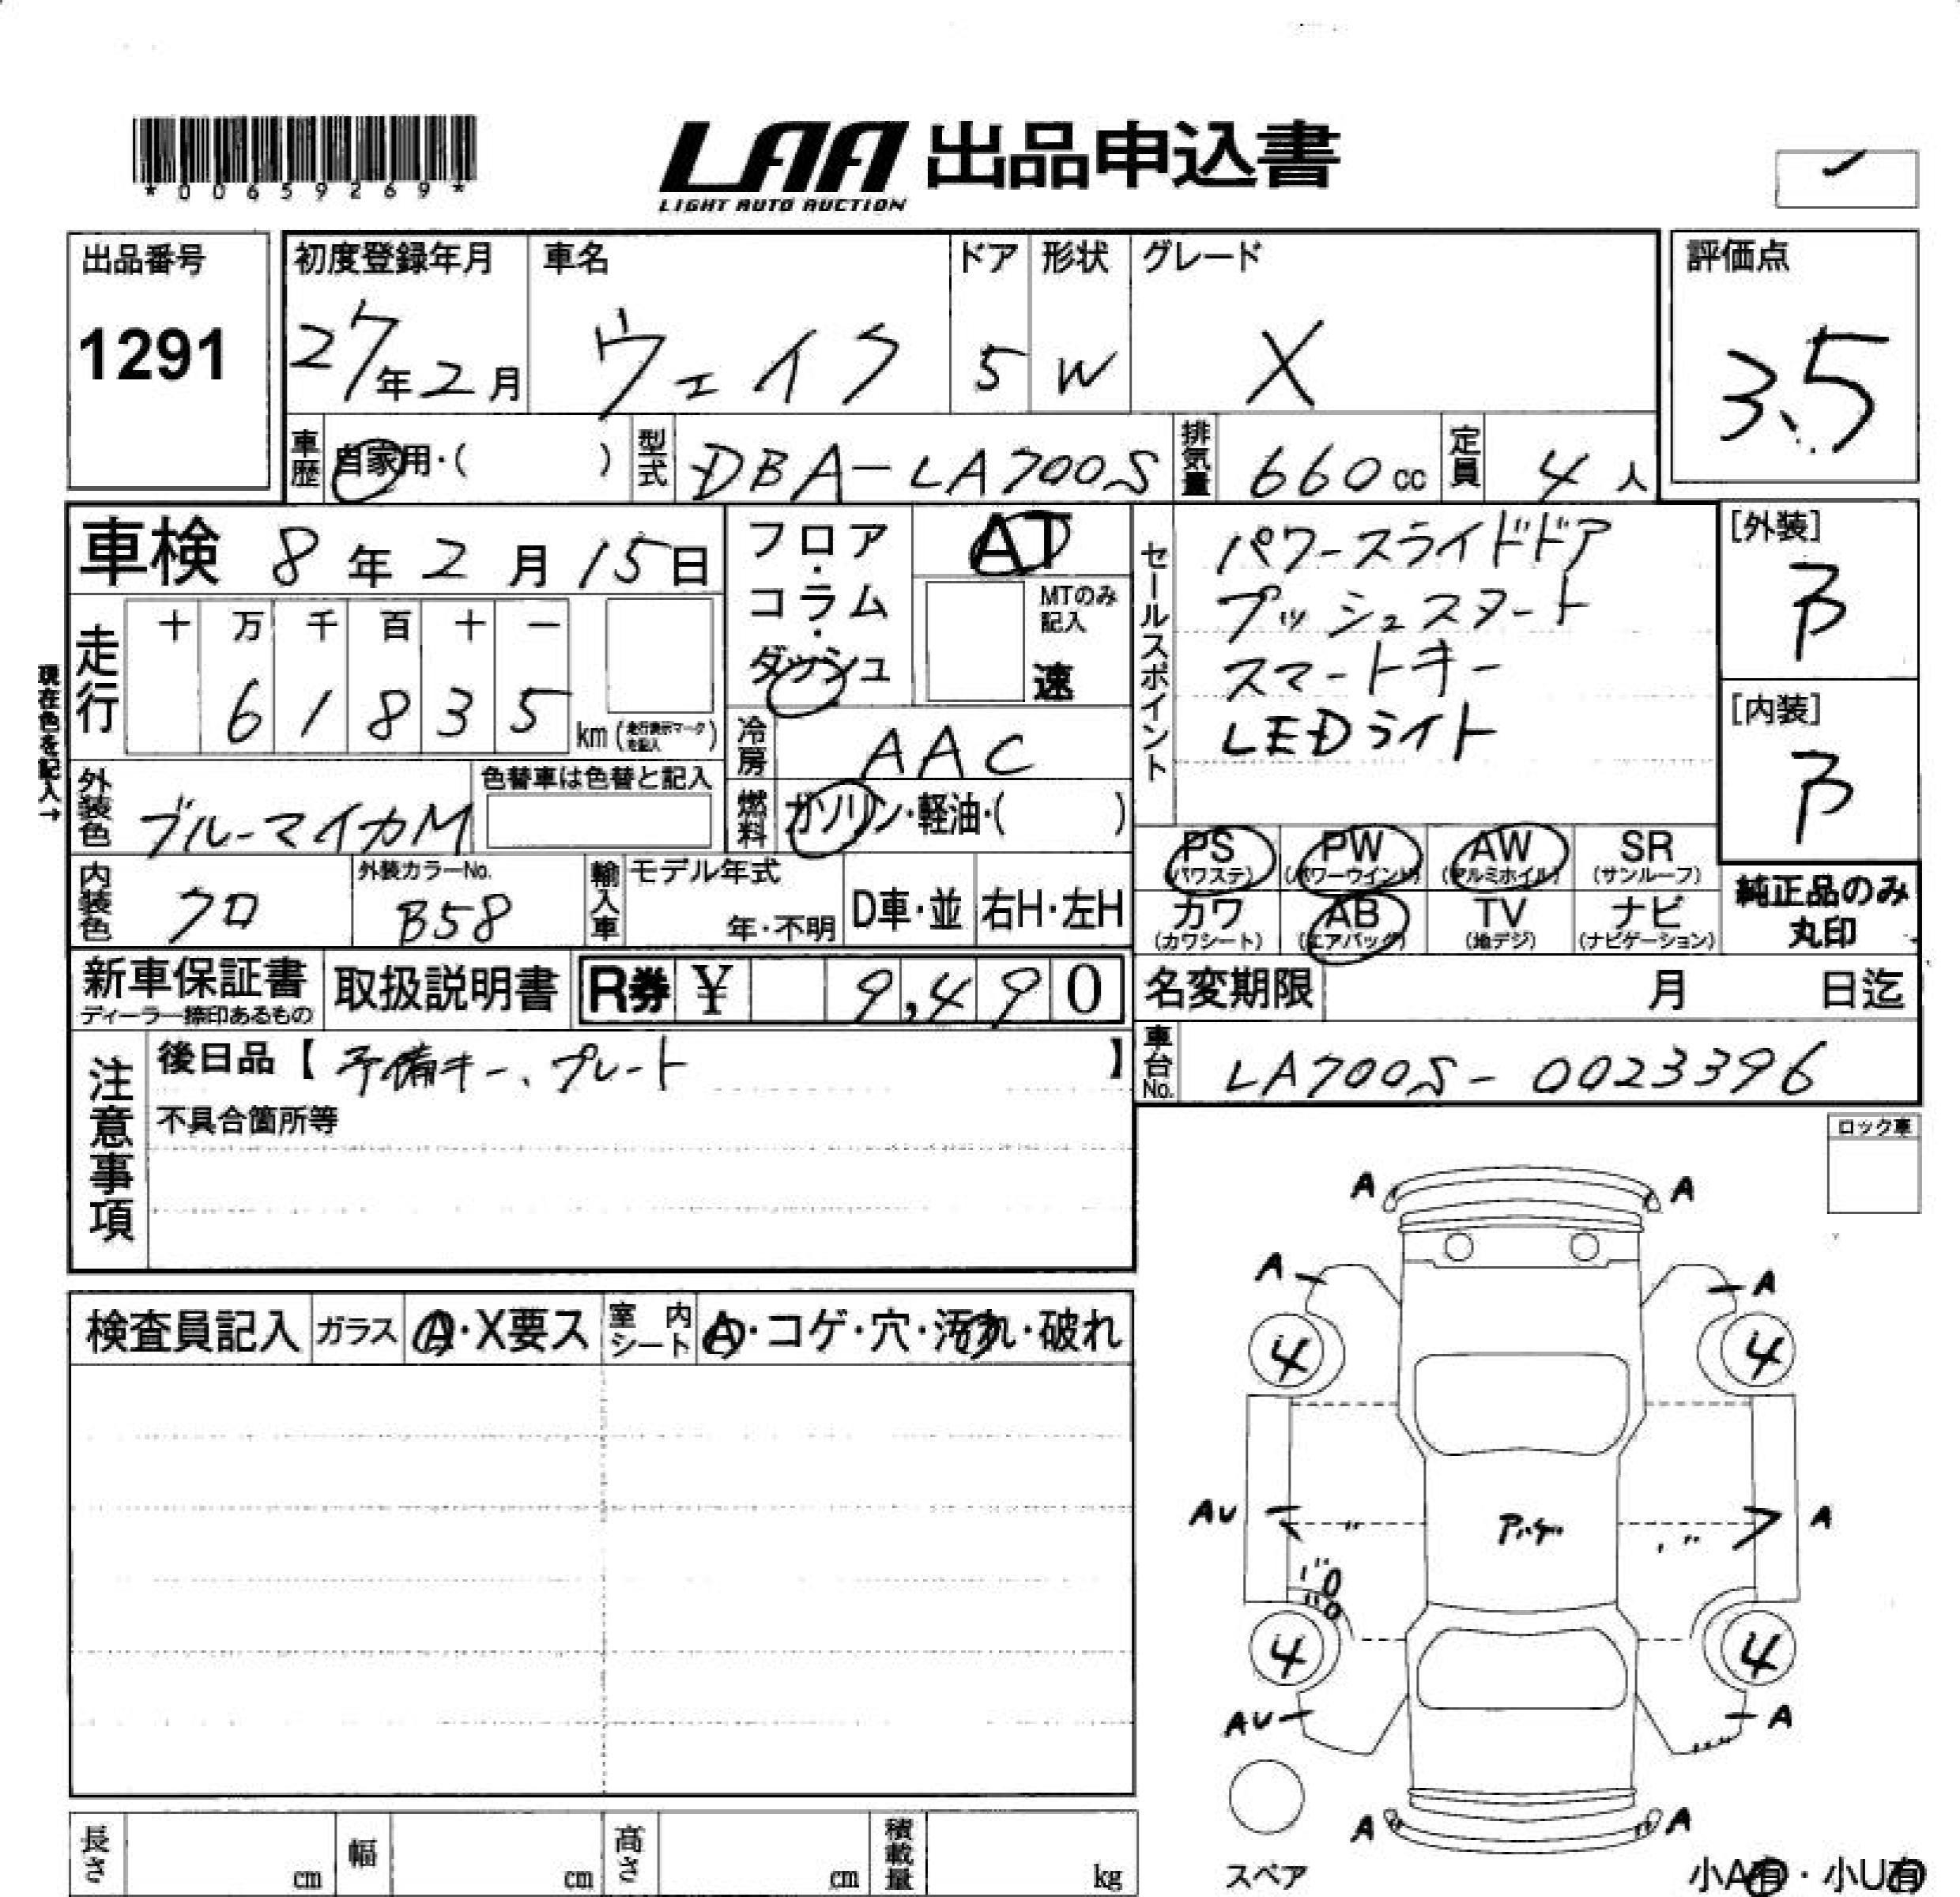 *00659269*
LAA 出品申込書
LIGHT AUTO AUCTION
出品番号
1291
初度登録年月
27年2月
車名
ウェイク
ドア
5
形状
W
グレード
X
評価点
3.5
車歴
自家用・( )
型式
DBA-LA700S
排気量
660cc
定員
4人
車検 8年2月15日
現在色を記入→
走行
十 万 千 百 十 一
6 1 8 3 5
km (走行表示マークを記入)
フロア・コラム・ダッシュ
AT
MTのみ記入
速
冷房
AAC
燃料
ガソリン・軽油・( )
外装色
ブルーマイカM
色替車は色替と記入
内装色
クロ
外装カラーNo.
B58
輸入車
モデル年式
年・不明
D車・並
右H・左H
セールスポイント
パワースライドドア
プッシュスタート
スマートキー
LEDライト
[外装]
B
[内装]
B
PS (パワステ)
PW (パワーウインド)
AW (アルミホイル)
SR (サンルーフ)
カワ (カワシート)
AB (エアバッグ)
TV (地デジ)
ナビ (ナビゲーション)
純正品のみ丸印
新車保証書
ディーラー捺印あるもの
取扱説明書
R券 ¥ 9,490
名変期限 月 日迄
車台No.
LA700S-0023396
注意事項
後日品【予備キー、プレート】
不具合箇所等
ロック車
検査員記入
ガラス
A・X要ス
室内シート
A・コゲ・穴・汚れ・破れ
A A
A A
4 4
AU A
4 4
AU A
A A
スペア
小A有・小U有
長さ cm
幅 cm
高さ cm
積載量 kg